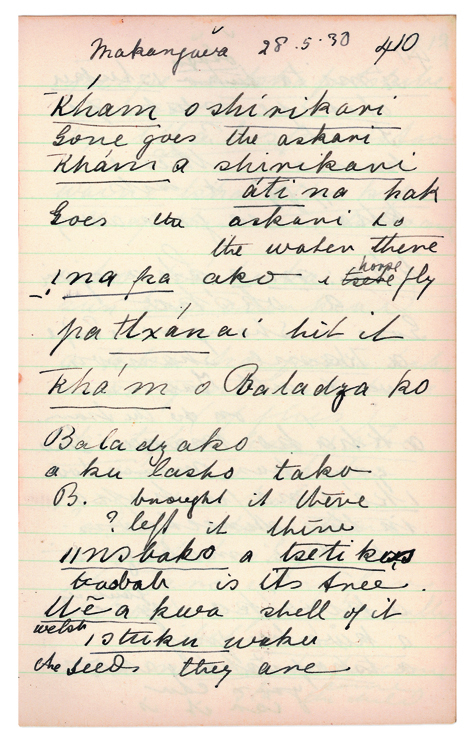 Makangáva 28.5.30 410
Khám o shirikari
Gone goes the askari
Khám a shirikari
áti na hak
Goes the askari to
the water there
! na pa ako i horse fly
pa tlxánai hit it
Khám o Baladza ko
Baladzako
a ku lasho tako
B. brought it there
? left it there
baobab is its tree.
Uẽ a kwa shell of it
welsh
ishuku waku
the seeds they are